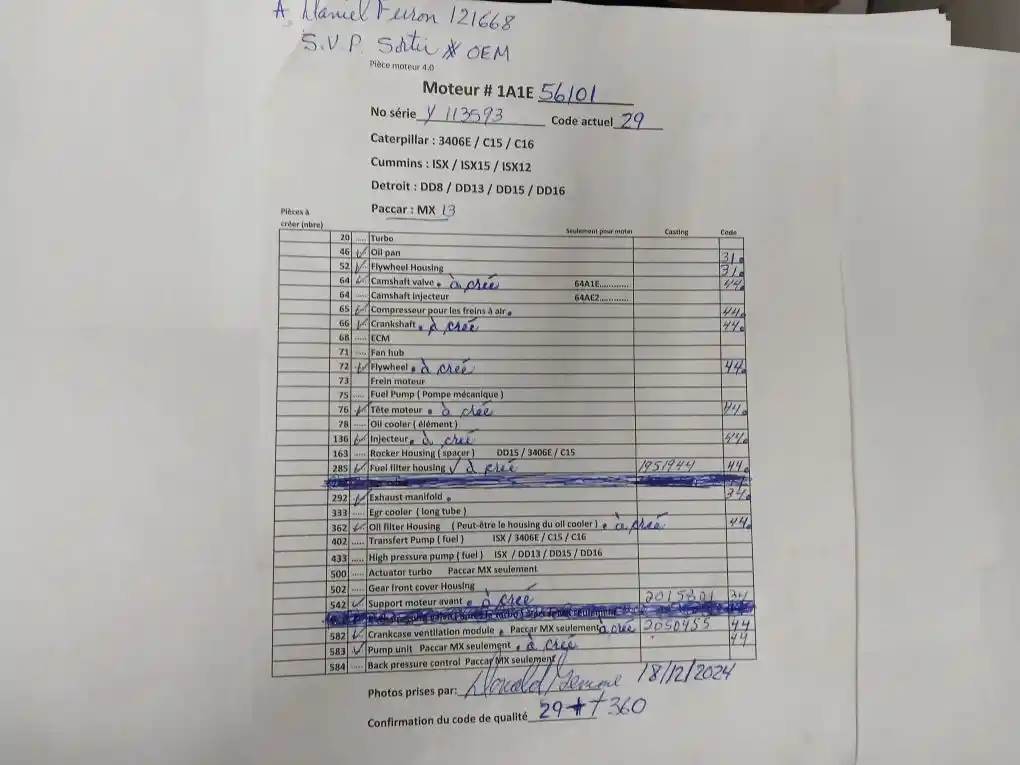 A, Daniel 121668
S.V.P. Sortir # OEM
Pièce moteur 4.0
Moteur # 1A1E 56101
No série Y 113593 Code actuel 29
Caterpillar : 3406E / C15 / C16
Cummins : ISX / ISX15 / ISX12
Detroit : DD8 / DD13 / DD15 / DD16
Paccar : MX 13
Pièces à créer (nbre) Seulement pour moteur Casting Code
20 ..... Turbo
46 ✓ Oil pan 31.
52 ✓ Flywheel Housing 31.
64 ✓ Camshaft valve . à créé 64A1E........... 44.
64 ..... Camshaft injecteur 64AE2...........
65 ✓ Compresseur pour les freins à air . 44.
66 ✓ Crankshaft . à créé 44.
68 ..... ECM
71 ..... Fan hub
72 ✓ Flywheel . à créé 44.
73 Frein moteur
75 ..... Fuel Pump ( Pompe mécanique )
76 ✓ Tête moteur . à créé 44.
78 ..... Oil cooler ( élément )
136 ✓ Injecteur . à créé 44.
163 ..... Rocker Housing ( spacer ) DD15 / 3406E / C15
285 ✓ Fuel filter housing ✓ à créé 1951944 44.
292 ✓ Exhaust manifold . 34.
333 ..... Egr cooler ( long tube )
362 ✓ Oil filter Housing ( Peut-être le housing du oil cooler ) . à créé 44.
402 ..... Transfert Pump ( fuel ) ISX / 3406E / C15 / C16
433 ..... High pressure pump ( fuel ) ISX / DD13 / DD15 / DD16
500 ..... Actuator turbo Paccar MX seulement
502 ..... Gear front cover Housing
542 ✓ Support moteur avant . à créé 2015801 34
582 ✓ Crankcase ventilation module . Paccar MX seulement à créé 2050455 44
583 ✓ Pump unit Paccar MX seulement . à créé 44
584 ..... Back pressure control Paccar MX seulement
Photos prises par: Donald 18/12/2024
Confirmation du code de qualité 29 + 360